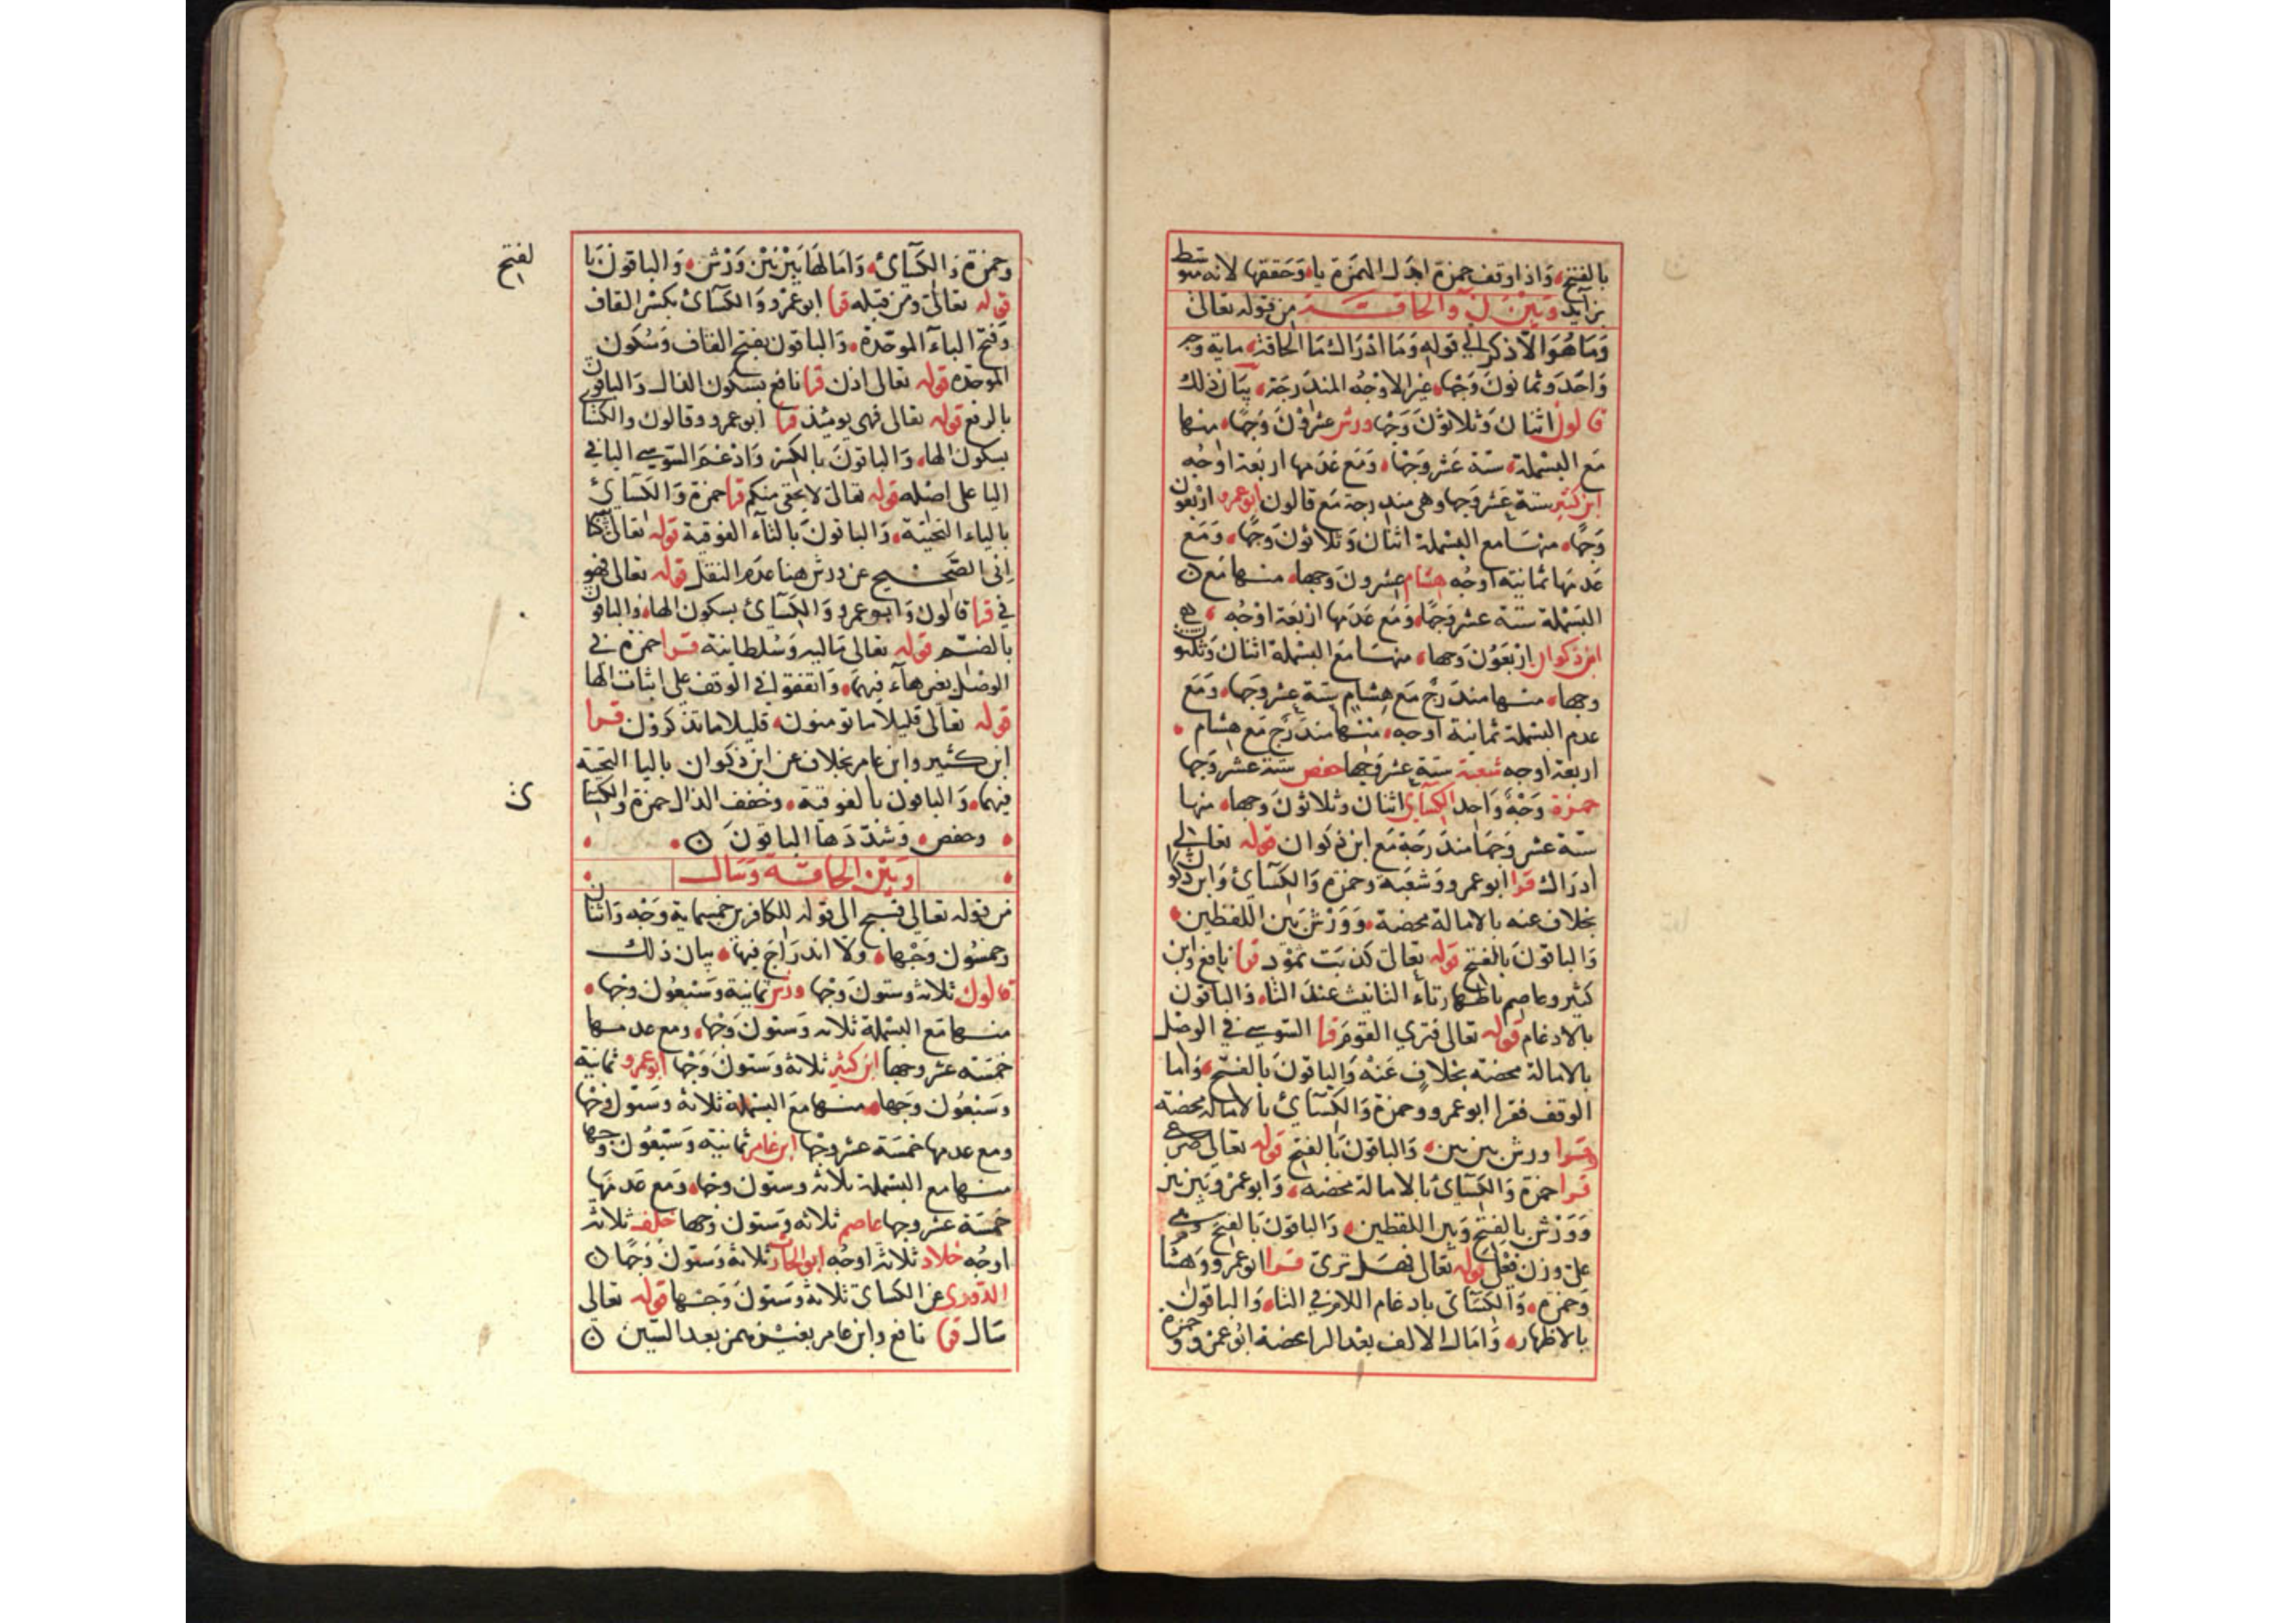 بالفتح، وَاذا وقف حمزة ابدل الهمزة ياء وَحَققها لانه متوسط
بزايد وَبَيْنَ نٓ وَالحاقـــة من قوله تعالى
وَمَا هُوَ الّا ذكر الي قوله وَمَا ادْرَاك مَا الحاقة، ماية وجه
وَاحَدَ وثمانونَ وَجْهًا، غير الاوْجُه المندَرجَة، بيَان ذلك
قالون اثنان وَثلاثوْنَ وَجْهًا ورش عشروْنَ وَجْهًا، منها
مَع البسْملة، ستة عَشر وَجْهًا، وَمَع عَدَمها اربَعة اوجُه
ابن كثير ستة عَشر وَجها وهي مندرجة مَع قالون ابوعمرو ارْبعون
وَجْهًا، منهَا مع البسْملة اثنان وَثلاثونَ وَجْهًا، وَمَع
عَدَمهَا ثمانية اوجُه هشام عشرونَ وجها، منها مَع
البَسْملة ستة عشر وَجْهًا، وَمَع عَدَمها اربَعة اوْجُه،
ابن ذكوان ارْبَعُونَ وَجها، منهَا مَعَ البسْملة اثنان وَثلثون
وجها، منها مندَرجْ مَع هشام ستة عشر وَجْهَا، وَمَع
عدم البسْملة ثمانية اوجه، منها مندَرَج مَع هشام،
اربعة اوجه شعبة ستة عشر وَجها حفص ستة عشر وَجها
حمزة وَجْهٌ وَاحِد الكسَاي اثنان وثلاثونَ وجها، منها
ستة عشر وَجهَا مندَرجَة مَع ابن ذكوان قوله تعالي
ادرَاك قرا ابوعمرو وَشعْبَة وحمزة وَالكسَائ وَابن ذكوان
بخلاف عنه بالامالة محضة، وَوَرْش بَين اللفظين،
وَالباقونَ بالفتح قوله تعالى كذبَت ثموْد قرا نافع وابن
كثير وعاصم باظهار تاءِ التانيث عندَ الثاء، وَالباقون
بالادغام قوله تعالى فتري القومَ قرا السّوسي في الوصْل
بالامالة محضة بخلافٍ عَنْهُ وَالباقونَ بالفتح، وَاما
الوقف فقرا ابوعمرو وحمزة وَالكسَائ بالامالة محضة
وقرا ورش بين بين، وَالباقونَ بالفتح قوله تعالي صرعي
قرا حمزة وَالكسَائ بالامالة محضه، وَابوعمْرو بَين بين
وَوَرْش بالفتح وَبين اللفظين، وَالباقوَن بالفتح وهي
على وزن فعْلى قوله تعالى فهَل ترىٰ قرا ابوعمرو وَهشام
وَحمزه، وَالكسَائ بادغام اللام في التاء، وَالباقون
بالاظهار، وَامَال الالف بعْدَ الرا محضة ابُوعمْرو وحمزة
وحمزة وَالكسَائ، وَامَالهَا بَيْنَ بَيْن وَرْش، وَالباقونَ با
لفتح
قوله تعالىٰ ومن قبَله قرا ابوعمْرو وَالكسَائ بكسْر القاف
وَفتح البآءَ الموَحّدة، وَالباقون بفتح القاف وَسُكون
الموحّده قوله تعالى اذن قرا نافع بسكون الذال وَالباقون
بالرفع قوله تعالى فهي يومئذ قرا ابوعمرو وقالون والكسَا
بسكون الها، وَالباقونَ بالكسْر وَادغمَ السّوسي اليا في
اليا على اصْله قوله تعالىٰ لا يخفى منكم قرا حمزة وَالكسَائ
بالياء التحتية، وَالباقونَ بالتآء الفوقية قوله تعالىٰ كتا
اِنى الصَّحـيح عن ورش هنا عدَم النقل قوله تعالى فهو
في قرا قالون وَابوعمرو وَالكسَائ بسكون الهاء، وَالباقون
بالضــم قوله تعالى ماليه وَسُلطانية قرا حمزة في
الوصْل بغير هآء فيهمَا، وَاتفقوا في الوقف على اثبات الها
قوله تعَالى قليلا ما تومنون، قليلا ما تذكروْن قرا
ابن كثير وابن عامر بخلاف عن ابن ذكوان باليا التحتية
فيهمَا، وَالباقون بالفوقية، وخفف الذال حمزة وَالكسَا
ئ
وحفص، وَشدّدَهَا الباقونَ
وَبَيْن الحاقــة وَسَال
من قوله تعالي فسبح الى قوله للكافرين خمسماية وَجْه وَاثنان
وخمسُون وَجْهًا، ولا اندرَاجَ فيها، بيان ذلك
قالون ثلاثة وستونَ وَجْها ورش ثمانية وَسَبْعُون وَجْها،
منها مَع البسْملة ثلاثة وَستون وَجْها، ومع عدمها
خمسَة عشر وجها ابن كثير ثلاثة وَستونَ وَجْها ابوعمرو ثمانية
وَسَبْعُون وَجها، منها مع البسْملة ثلاثة وَستون وَجْها
ومع عدمها خمسَة عشر وَجْها ابن عامر ثمانية وَسَبْعُون وجها
منها مع البسْملة ثلاثة وستون وجها، وَمَع عَدمهَا
خمسَة عشر وجها عاصم ثلاثة وَستون وَجها خلف ثلاثة
اوجُه خلاد ثلاثة اوجُه ابوالحارث ثلاثة وَستون وَجْهًا
الدّوري عن الكساى ثلاثة وَستونَ وَجها قوله تعالى
سَال قرا نافع وابن عامر بغير همز بعد السّين